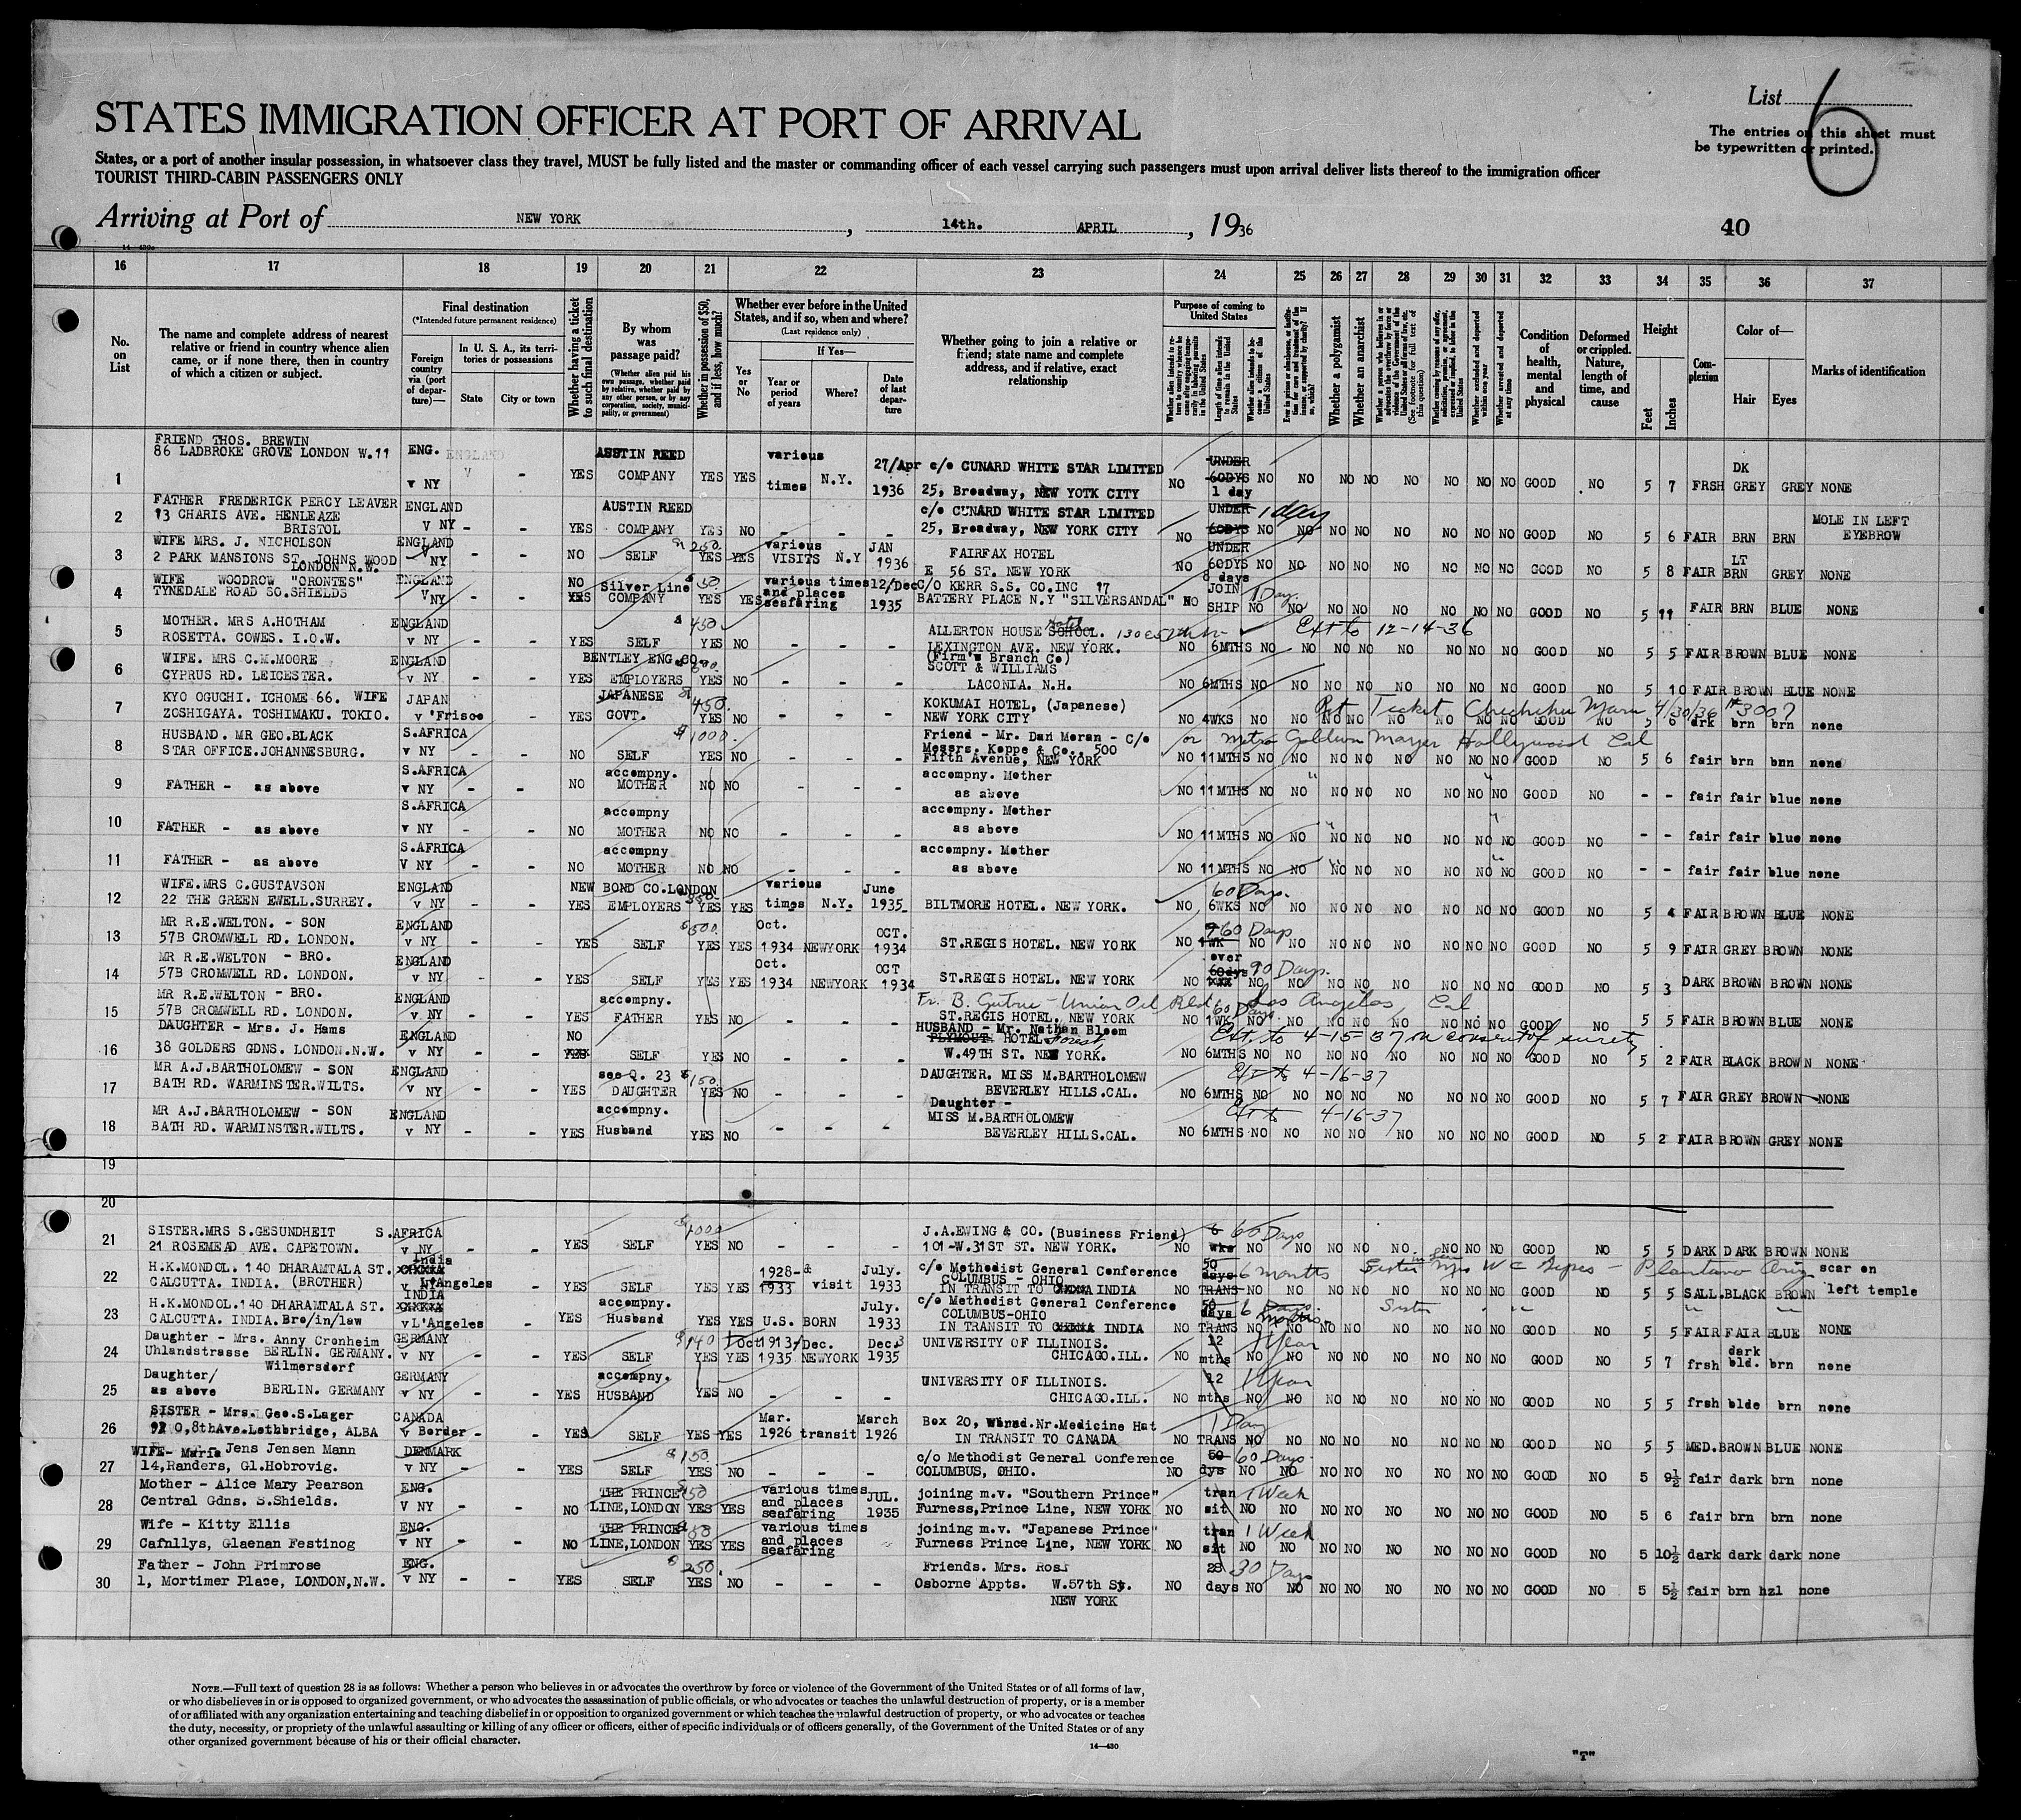 List 6
STATES IMMIGRATION OFFICER AT PORT OF ARRIVAL
The entries on this sheet must
be typewritten or printed.
States, or a port of another insular possession, in whatsoever class they travel, MUST be fully listed and the master or commanding officer of each vessel carrying such passengers must upon arrival deliver lists thereof to the immigration officer
TOURIST THIRD-CABIN PASSENGERS ONLY
Arriving at Port of NEW YORK, 14th. APRIL, 1936 40
16 17 18 19 20 21 22 23 24 25 26 27 28 29 30 31 32 33 34 35 36 37
No. on List
The name and complete address of nearest relative or friend in country whence alien came, or if none there, then in country of which a citizen or subject.
Final destination
(*Intended future permanent residence)
Foreign country via (port of departure)—
In U. S. A., its territories or possessions
State City or town
Whether having a ticket to such final destination
By whom was passage paid?
(Whether alien paid his own passage, whether paid by relative, whether paid by any other person, or by any corporation, society, municipality, or government)
Whether in possession of $50, and if less, how much?
Whether ever before in the United States, and if so, when and where?
(Last residence only)
Yes or No
If Yes—
Year or period of years Where? Date of last departure
Whether going to join a relative or friend; state name and complete address, and if relative, exact relationship
Purpose of coming to United States
Length of time alien intends to remain in the United States
Whether alien intends to become a citizen of the United States
Whether a polygamist
Whether an anarchist
Whether excluded and deported within one year
Whether arrested and deported at any time
Condition of health, mental and physical
Deformed or crippled. Nature, length of time, and cause
Height
Feet Inches
Complexion
Color of—
Hair Eyes
Marks of identification
1 FRIEND THOS. BREWIN
86 LADBROKE GROVE LONDON W.11 ENG. v NY - YES AUSTIN REED COMPANY YES YES various times N.Y. 27/Apr 1936 c/o CUNARD WHITE STAR LIMITED
25, Broadway, NEW YOTK CITY NO UNDER 60DYS 1 day NO NO NO NO NO NO NO NO GOOD NO 5 7 FRSH DK GREY GREY NONE
2 FATHER FREDERICK PERCY LEAVER
13 CHARIS AVE. HENLEAZE
BRISTOL ENGLAND v NY - - YES AUSTIN REED COMPANY YES NO - - - c/o CUNARD WHITE STAR LIMITED
25, Broadway, NEW YORK CITY NO UNDER 60DYS 1 day NO NO NO NO NO NO NO NO GOOD NO 5 6 FAIR BRN BRN MOLE IN LEFT EYEBROW
3 WIFE MRS. J. NICHOLSON
2 PARK MANSIONS ST. JOHNS WOOD
LONDON N.W. ENGLAND v NY - - NO SELF $250 YES YES various VISITS N.Y JAN 1936 FAIRFAX HOTEL
E 56 ST. NEW YORK NO UNDER 60DYS NO NO NO NO NO NO NO NO GOOD NO 5 8 FAIR LT BRN GREY NONE
4 WIFE WOODROW "ORONTES"
TYNEDALE ROAD SO.SHIELDS ENGLAND v NY - - NO YES Silver Line COMPANY $50. YES YES various times and places seafaring 12/Dec 1935 C/O KERR S.S. CO.INC 17
BATTERY PLACE N.Y "SILVERSANDAL" NO 8 days JOIN SHIP 1 Day. NO NO NO NO NO NO NO NO GOOD NO 5 11 FAIR BRN BLUE NONE
5 MOTHER. MRS A.HOTHAM
ROSETTA. COWES. I.O.W. ENGLAND v NY - - YES SELF $450 YES NO - - - ALLERTON HOUSE SCHOOL. Hotel
LEXINGTON AVE. NEW YORK. Ext to 12-14-36 NO 6MTHS NO NO NO NO NO NO NO NO GOOD NO 5 5 FAIR BROWN BLUE NONE
6 WIFE. MRS C.M.MOORE
CYPRUS RD. LEICESTER. ENGLAND v NY - - YES BENTLEY ENG.CO. EMPLOYERS YES NO - - - (Firm's Branch Co)
SCOTT & WILLIAMS
LACONIA. N.H. NO 6MTHS NO NO NO NO NO NO NO NO GOOD NO 5 10 FAIR BROWN BLUE NONE
7 KYO OGUCHI. ICHOME 66. WIFE
ZOSHIGAYA. TOSHIMAKU. TOKIO. JAPAN v 'Frisco - YES JAPANESE GOVT. $450. YES NO - - - KOKUMAI HOTEL, (Japanese)
NEW YORK CITY Ticket Chichibu Maru 4/30/36 #3007 NO 4WKS NO NO NO NO NO NO NO NO GOOD NO 5 6 drk brn brn none
8 HUSBAND. MR GEO.BLACK
STAR OFFICE.JOHANNESBURG. S.AFRICA v NY - - NO SELF $1000. YES NO - - - Friend - Mr. Dan Moran - c/o
Messrs. Koppe & Co., 500
Fifth Avenue, NEW YORK or Metro Goldwn Mayer Hollywood Cal NO 11MTHS NO NO NO NO NO NO NO NO GOOD NO 5 6 fair brn bnn none
9 FATHER - as above S.AFRICA v NY - - NO accompny. MOTHER NO NO - - - accompny. Mother
as above NO 11MTHS NO NO NO NO NO NO NO NO GOOD NO - - fair fair blue none
10 FATHER - as above S.AFRICA v NY - - NO accompny MOTHER NO NO - - - accompny. Mother
as above NO 11MTHS NO NO NO NO NO NO NO NO GOOD NO - - fair fair blue none
11 FATHER - as above S.AFRICA V NY - - NO accompny MOTHER NO NO - - - accompny. Mother
as above NO 11MTHS NO NO NO NO NO NO NO NO GOOD NO - - fair fair blue none
12 WIFE.MRS C.GUSTAVSON
22 THE GREEN EWELL.SURREY. ENGLAND v NY - - YES NEW BOND CO.LONDON EMPLOYERS YES YES various times N.Y. June 1935 BILTMORE HOTEL. NEW YORK. NO 60 Days. 6WKS NO NO NO NO NO NO NO NO GOOD NO 5 4 FAIR BROWN BLUE NONE
13 MR R.E.WELTON. - SON
57B CROMWELL RD. LONDON. ENGLAND v NY - - YES SELF $500. YES YES Oct. 1934 NEWYORK OCT. 1934 ST.REGIS HOTEL. NEW YORK NO 60 Days 1WK NO NO NO NO NO NO NO NO GOOD NO 5 9 FAIR GREY BROWN NONE
14 MR R.E.WELTON - BRO.
57B CROMWELL RD. LONDON. ENGLAND v NY - - YES SELF YES YES Oct. 1934 NEWYORK OCT 1934 ST.REGIS HOTEL. NEW YORK NO over 60dys 90 Days. NO NO NO NO NO NO NO NO GOOD NO 5 3 DARK BROWN BROWN NONE
15 MR R.E.WELTON - BRO.
57B CROMWELL RD. LONDON. ENGLAND v NY - - YES accompny. FATHER YES NO - - - Union Oil Bld. Los Angeles, Cal
ST.REGIS HOTEL. NEW YORK NO 60 Days 1WK NO NO NO NO NO NO NO NO GOOD NO 5 5 FAIR BROWN BLUE NONE
16 DAUGHTER - Mrs. J. Hams
38 GOLDERS GDNS. LONDON.N.W. ENGLAND v NY - - NO SELF YES NO - - - HUSBAND - Mr. Nathan Bloom
PLYMOUTH HOTEL. Forest
W.49TH ST. NEW YORK. Ext. to 4-15-37 on consent of surety NO 6MTHS NO NO NO NO NO NO NO NO GOOD NO 5 2 FAIR BLACK BROWN NONE
17 MR A.J.BARTHOLOMEW - SON
BATH RD. WARMINSTER.WILTS. ENGLAND v NY - - YES see Q. 23 DAUGHTER $150 YES NO - - - DAUGHTER. MISS M.BARTHOLOMEW
BEVERLEY HILLS.CAL. Ext to 4-16-37 NO 6MTHS NO NO NO NO NO NO NO NO GOOD NO 5 7 FAIR GREY BROWN NONE
18 MR A.J.BARTHOLOMEW - SON
BATH RD. WARMINSTER.WILTS. ENGLAND v NY - - YES accompny. Husband YES NO - - - Daughter -
MISS M.BARTHOLOMEW
BEVERLEY HILLS.CAL. Ext to 4-16-37 NO 6MTHS NO NO NO NO NO NO NO NO GOOD NO 5 2 FAIR BROWN GREY NONE
19
20
21 SISTER.MRS S.GESUNDHEIT
21 ROSEMEAD AVE. CAPETOWN. S.AFRICA v NY - - YES SELF $1000 YES NO - - - J.A.EWING & CO. (Business Friend)
101-W.31ST ST. NEW YORK. NO 6 wks 60 Days NO NO NO NO NO NO NO NO GOOD NO 5 5 DARK DARK BROWN NONE
22 H.K.MONDOL. 140 DHARAMTALA ST.
CALCUTTA. INDIA. (BROTHER) India v L'Angeles - YES SELF YES YES 1928-& 1933 visit July. 1933 c/o Methodist General Conference
COLUMBUS - OHIO
IN TRANSIT TO INDIA NO 50 days TRANS 6 months NO NO NO NO NO NO NO NO GOOD NO 5 5 SALL.BLACK BROWN scar on left temple
23 H.K.MONDOL.140 DHARAMTALA ST.
CALCUTTA. INDIA.Bro/in/law INDIA v L'Angeles - YES accompny. Husband YES YES U.S. BORN July. 1933 c/o Methodist General Conference
COLUMBUS-OHIO
IN TRANSIT TO INDIA NO 50 days TRANS 6 months Sister NO NO NO NO NO NO NO NO GOOD NO 5 5 FAIR FAIR BLUE NONE
24 Daughter - Mrs. Anny Cronheim
Uhlandstrasse BERLIN. GERMANY.
Wilmersdorf GERMANY v NY - - YES SELF $140 YES YES Oct1913/Dec. 1935 NEWYORK Dec. 1935 UNIVERSITY OF ILLINOIS.
CHICAGO.ILL. NO 12 mths 1 Year NO NO NO NO NO NO NO NO GOOD NO 5 7 frsh dark bld. brn none
25 Daughter/
as above BERLIN. GERMANY GERMANY v NY - - YES accompny. HUSBAND YES NO - - - UNIVERSITY OF ILLINOIS.
CHICAGO.ILL. NO 12 mths 1 Year NO NO NO NO NO NO NO NO GOOD NO 5 5 frsh blde brn none
26 SISTER - Mrs. Geo.S.Lager
920,8thAve.Lethbridge, ALBA CANADA v Border - - YES SELF YES YES Mar. 1926 transit March 1926 Box 20, Nr.Medicine Hat
IN TRANSIT TO CANADA NO TRANS 1 Day NO NO NO NO NO NO NO NO GOOD NO 5 5 MED.BROWN BLUE NONE
27 WIFE- Maria Jens Jensen Mann
14,Randers, Gl.Hobrovig. DENMARK v NY - - YES SELF $150. YES NO - - - c/o Methodist General Conference
COLUMBUS, OHIO. NO 50 dys 60 Days. NO NO NO NO NO NO NO NO GOOD NO 5 9½ fair dark brn none
28 Mother - Alice Mary Pearson
Central Gdns. S.Shields. ENG. V NY - - NO THE PRINCE LINE,LONDON $50 YES YES various times and places seafaring JUL. 1935 joining m.v. "Southern Prince"
Furness,Prince Line, NEW YORK NO tran sit 1 Week NO NO NO NO NO NO NO NO GOOD NO 5 6 fair brn brn none
29 Wife - Kitty Ellis
Cafnllys, Glaenan Festinog ENG. v NY - - NO THE PRINCE LINE,LONDON $50 YES YES various times and places seafaring joining m.v. "Japanese Prince"
Furness Prince Line, NEW YORK NO tran sit 1 Week NO NO NO NO NO NO NO NO GOOD NO 5 10½ dark dark dark none
30 Father - John Primrose
1, Mortimer Plase, LONDON,N.W. ENG. v NY - - YES SELF $250. YES NO - - - Friends. Mrs. Ross
Osborne Appts. W.57th St.
NEW YORK NO 28 days 30 Days NO NO NO NO NO NO NO NO GOOD NO 5 5½ fair brn hzl none
NOTE.—Full text of question 28 is as follows: Whether a person who believes in or advocates the overthrow by force or violence of the Government of the United States or of all forms of law,
or who disbelieves in or is opposed to organized government, or who advocates the assassination of public officials, or who advocates or teaches the unlawful destruction of property, or is a member
of or affiliated with any organization entertaining and teaching disbelief in or opposition to organized government or which teaches the unlawful destruction of property, or who advocates or teaches
the duty, necessity, or propriety of the unlawful assaulting or killing of any officer or officers, either of specific individuals or of officers generally, of the Government of the United States or of any
other organized government because of his or their official character.
14—430
"T"